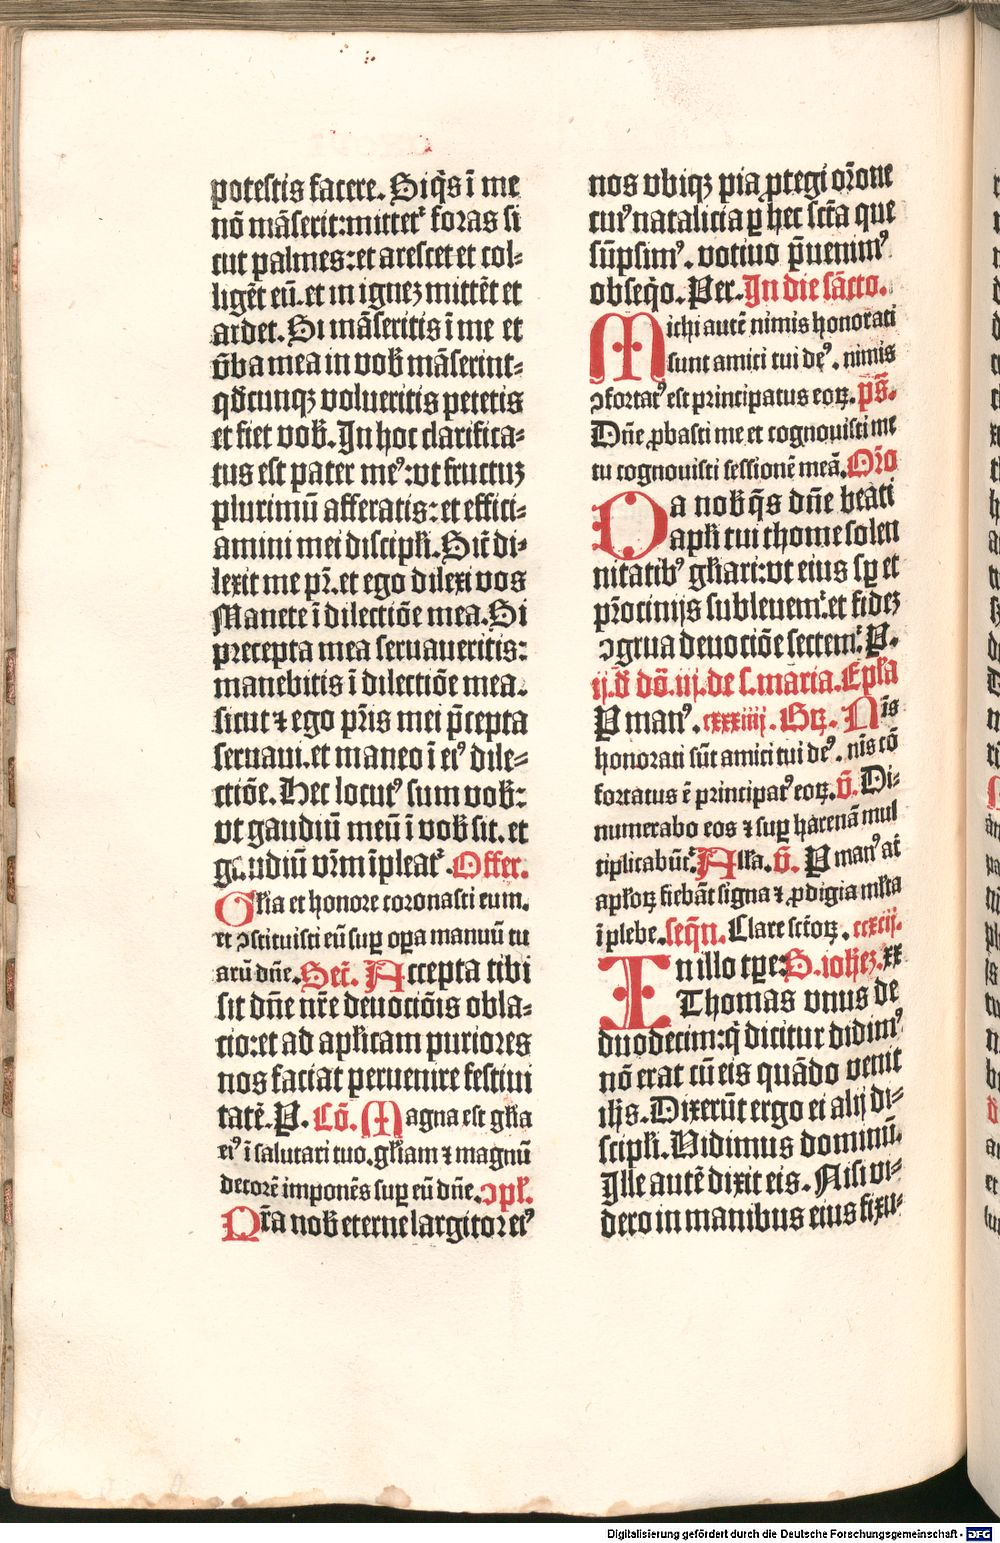 potestis facere. Siq̄s ī me
nō māserit:mitteť foras si
cut palmes:et arescet et col⸗
ligēt eū.et in ignez mittēt et
ardet. Si māseritis ī me et
v̄ba mea in vob̄ māserint⸗
qd̄cunqꝫ volueritis petetis
et fiet vob̄. In hoc clarifica⸗
tus est pater meꝰ:vt fructuꝫ
plurimū afferatis:et effici⸗
amini mei discipli. Sic̄ di⸗
lexit me pr̄.et ego dilexi vos
Manete ī dilectiōe mea. Si
precepta mea seruaueritis:
manebitis ī dilectiōe mea.
sicut ⁊ ego pr̄is mei p̄cepta
seruaui.et maneo ī eiꝰ dile⸗
ctiōe. Hec locutꝰ sum vob̄:
vt gaudiū meū ī vob̄ sit. et
gaudiū vr̄m īpleať. Offer.
Glīa et honore coronasti eum.
et ↄstituisti eū suꝑ oꝑa manuū tu
arū dn̄e. Sec̄. Accepta tibi
sit dn̄e nr̄e deuociōis obla⸗
cio:et ad aplicam puriores
nos faciat peruenire festiui
tatē. P. Cō. Magna est glīa
eiꝰ ī salutari tuo.glīam ⁊ magnū
decorē imponēs suꝑ eū dn̄e. ↄpl̄.
Pr̄a nob̄ eterne largitor eiꝰ
nos vbiqꝫ pia ꝓtegi orōne
cuiꝰ natalicia ꝑ hec sct̄a que
sūpsimꝰ. votiuo p̄uenimꝰ
obseq̄o. Per. In die sācto.
Michi autē nimis honorati
sunt amici tui deꝰ. nimis
ↄfortatꝰ est principatus eoꝝ. ps̄.
Dn̄e ꝓbasti me et cognouisti me
tu cognouisti sessionē meā. Orō
Da nob̄ q̄s dn̄e beati
apli tui thome solen
nitatibꝰ glīari:vt eius sꝑ et
pr̄ocinijs subleuemᷣ.et fideꝫ
ↄgrua deuociōe sectemᷣ. P.
ij.d̄ dō.iij.de s.maria. Epl̄a
P manꝰ. cxxxiiij. Gꝝ. Nīs
honorati sūt amici tui deꝰ. nīs cō
fortatus ē principatꝰ eoꝝ. v̄. Di⸗
numerabo eos ⁊ suꝑ harenā mul
tiplicabūť. Alla. v̄. P manꝰ at̄
aploꝝ fiebāt signa ⁊ ꝓdigia ml̄ta
ī plebe. seqn̄. Clare sctōꝝ. ccxcij.
In illo tꝑe: S. ioheꝫ. xx
Thomas vnus de
duodecim:q̄ dicitur didimꝰ
nō erat cū eis quādo venit
ihs̄. Dixerūt ergo ei alij di⸗
scipli. Vidimus dominū.
Ille autē dixit eis. Nisi vi⸗
dero in manibus eius fixu⸗
Digitalisierung gefördert durch die Deutsche Forschungsgemeinschaft - DFG